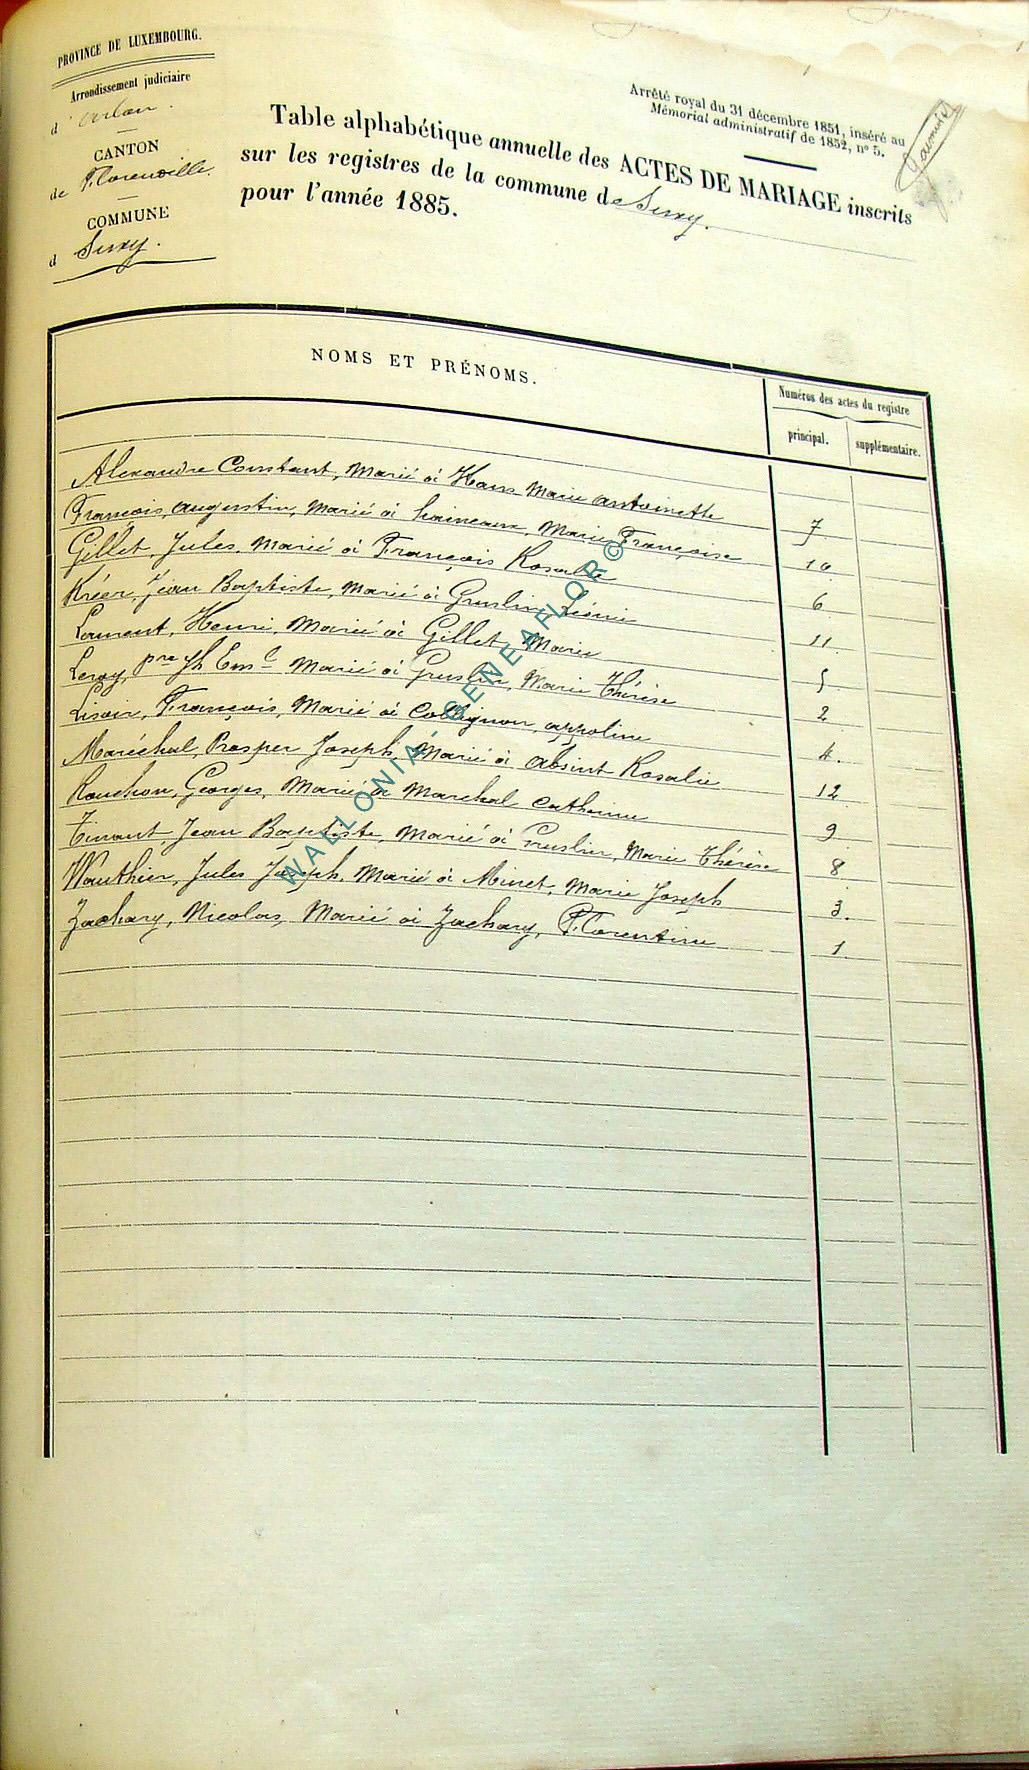 PROVINCE DE LUXEMBOURG.
Arrondissement judiciaire
d'Arlon.
CANTON
de Florenville.
COMMUNE
d Suxy.
Arrêté royal du 31 décembre 1851, inséré au
Mémorial administratif de 1852, n° 5.
Table alphabétique annuelle des ACTES DE MARIAGE inscrits
sur les registres de la commune de Suxy.
pour l'année 1885.
NOMS ET PRÉNOMS.
Numéros des actes du registre
principal.
supplémentaire.
Alexandre Constant, Marié à Hans Marie antoinette 7
François, augustin, Marié à haineaux, Marie Françoise 10
Gillet, Jules, Marié à François Rosalie 6
Jean Baptiste, Marié à Gruslin 11.
Laurent, Henri, Marié à Gillet, Marie 5
Leroy, pre Jh Eml Marié à Gruslin, Marie Thérèse 2
Lisoir, François, Marié à Collignon, appoline 4.
Maréchal, Prosper Joseph, Marié à absint Rosalie 12
Rouchon, Georges, Marié à Marchal Catherine 9
Tinant, Jean Baptiste, Marié à Gruslin, Marie Thérèse 8
Wauthier, Jules Joseph, Marié à Minet, Marie Joseph 3.
Zachary, Nicolas, Marié à Zachary, Florentine 1.
WALLONIA-GENEAFLOR©